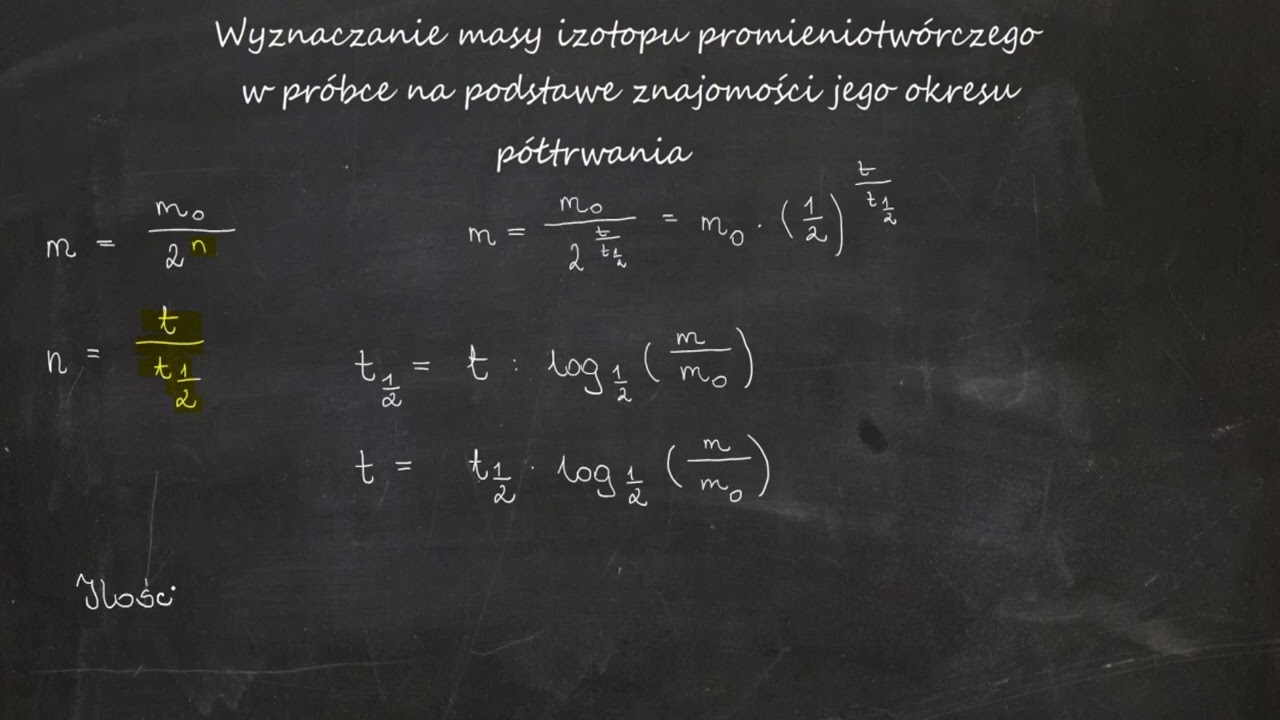 Wyznaczanie masy izotopu promieniotwórczego
w próbce na podstawe znajomości jego okresu
półtrwania
m = m₀ / 2ⁿ
m = m₀ / 2^(t / t_(1/2)) = m₀ · (1/2)^(t / t_(1/2))
n = t / t_(1/2)
t_(1/2) = t : log_(1/2) (m / m₀)
t = t_(1/2) · log_(1/2) (m / m₀)
Ilości